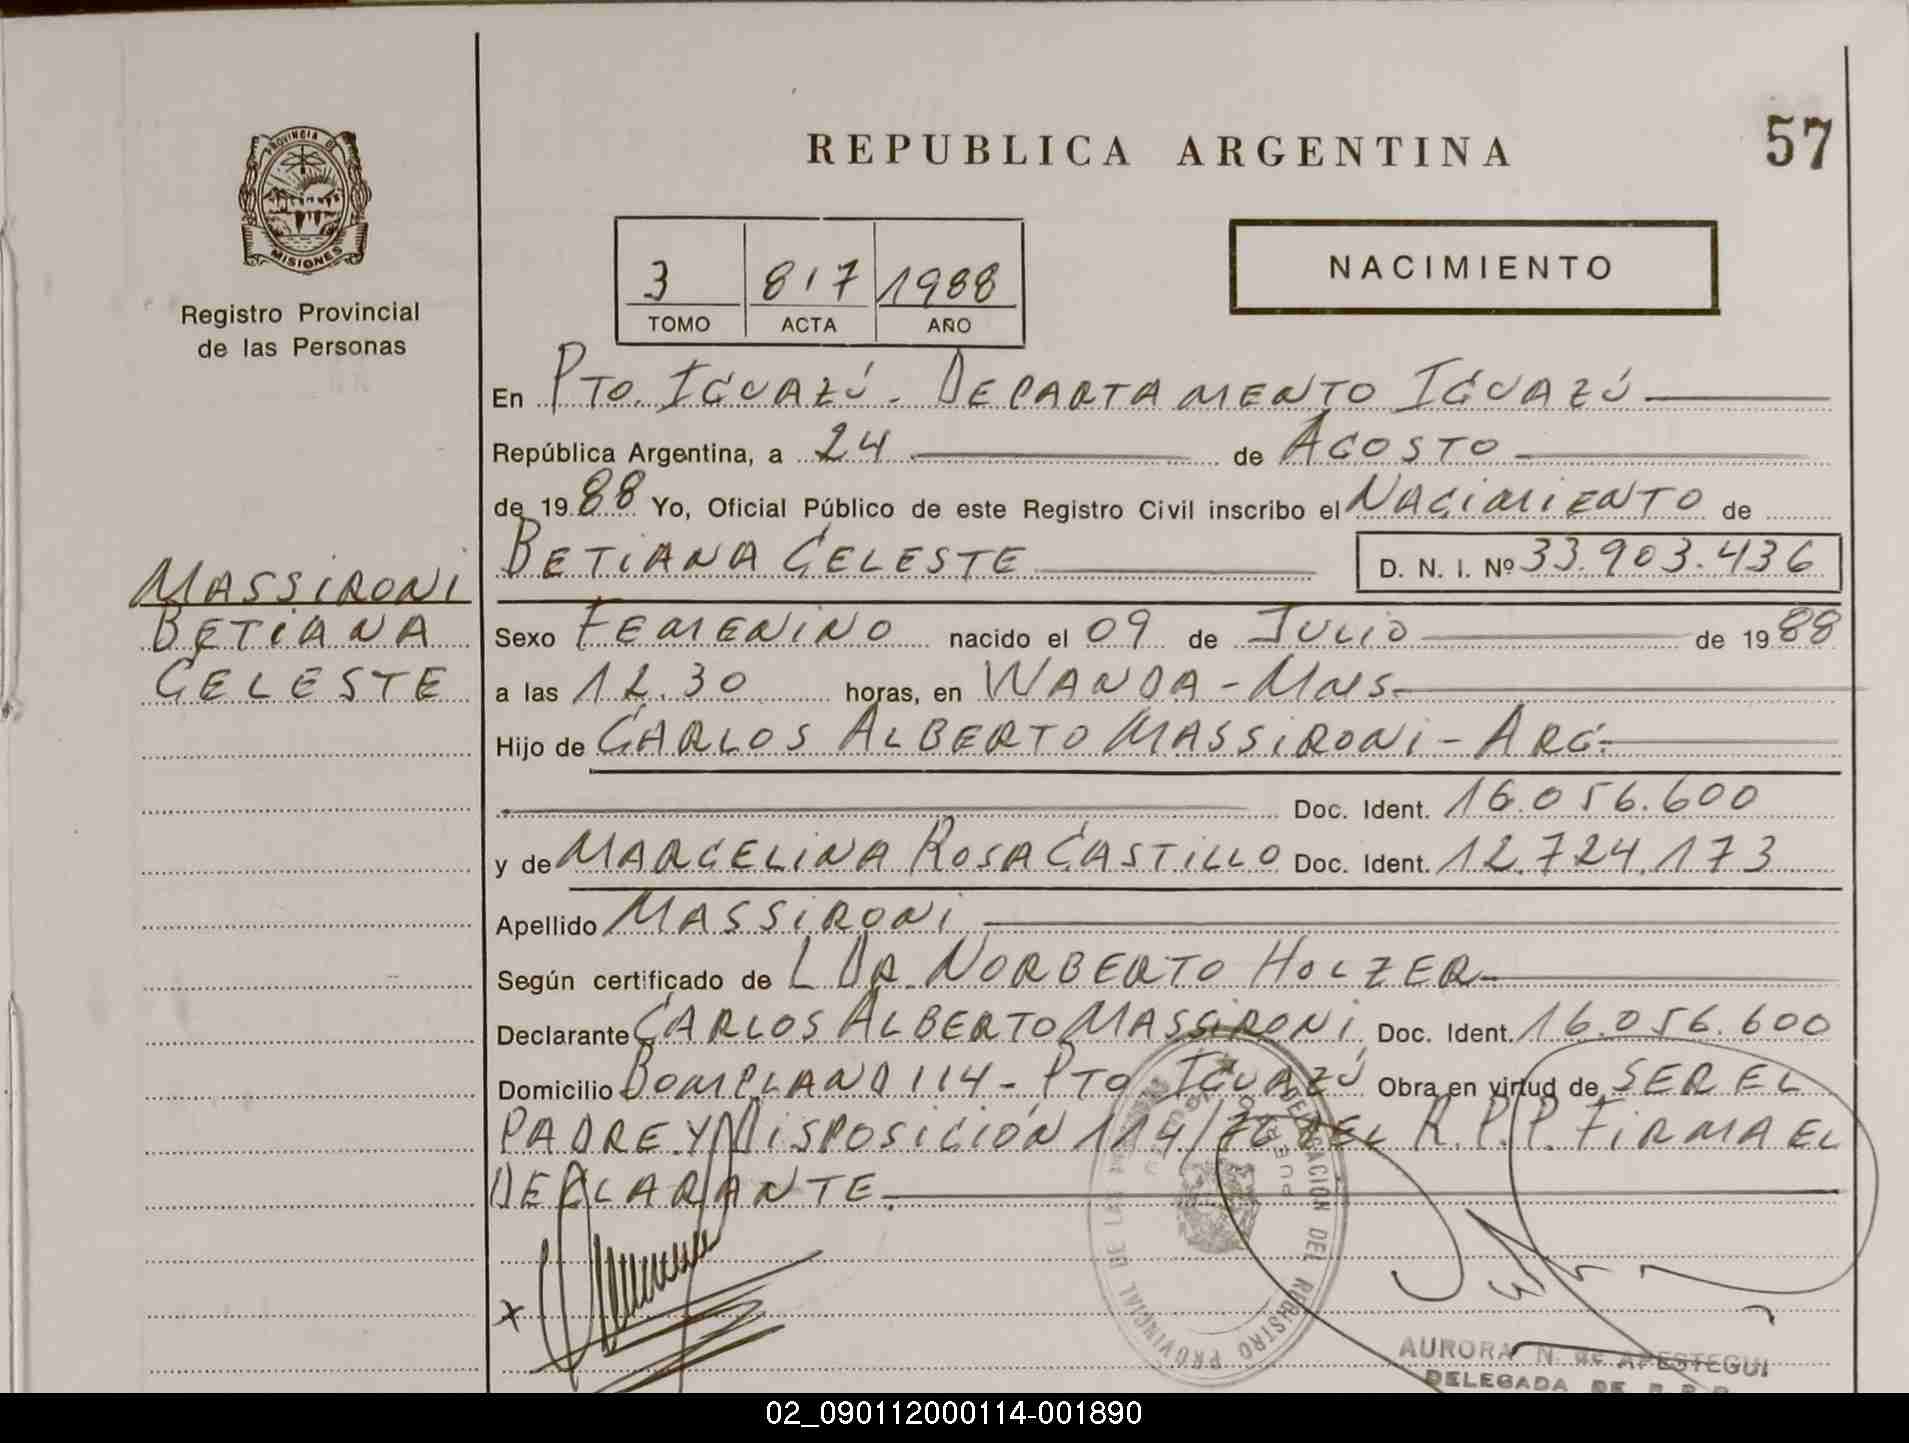 REPUBLICA ARGENTINA
57
PROVINCIA DE
MISIONES
Registro Provincial
de las Personas
3 817 1988
TOMO ACTA AÑO
NACIMIENTO
En PTO. IGUAZÚ - DEPARTAMENTO IGUAZÚ
República Argentina, a 24 de AGOSTO
de 1988 Yo, Oficial Público de este Registro Civil inscribo el NACIMIENTO de
BETIANA CELESTE D. N. I. Nº 33.903.436
MASSIRONI
BETIANA
CELESTE
Sexo FEMENINO nacido el 09 de JULIO de 1988
a las 12.30 horas, en WANDA - MNES-
Hijo de CARLOS ALBERTO MASSIRONI - ARG-
Doc. Ident. 16.056.600
y de MARCELINA ROSA CASTILLO Doc. Ident. 12.724.173
Apellido MASSIRONI
Según certificado de L DR. NORBERTO HOLZER-
Declarante CARLOS ALBERTO MASSIRONI Doc. Ident. 16.056.600
Domicilio BOMPLAND 114 - PTO IGUAZÚ Obra en virtud de SER EL
PADRE Y DISPOSICIÓN 114/76 DEL R.P.P. FIRMA EL
DECLARANTE.
x
DELEGACION DEL REGISTRO PROVINCIAL DE LAS
AURORA N. de APESTEGUI
DELEGADA DE R.P.P.
02_090112000114-001890